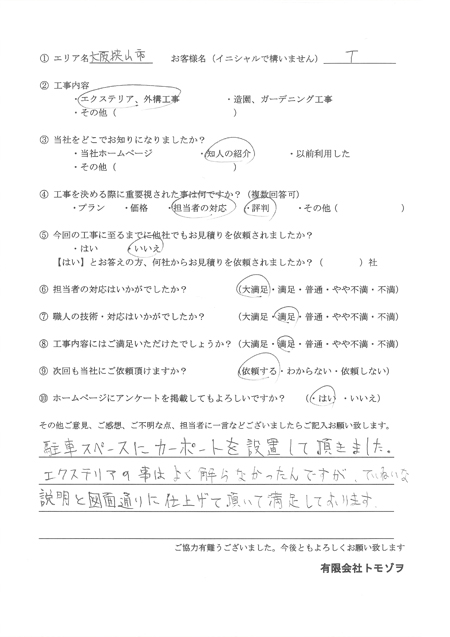 ① エリア名 大阪狭山市 お客様名(イニシャルで構いません) T
② 工事内容
・エクステリア、外構工事 ・造園、ガーデニング工事
・その他( )
③ 当社をどこでお知りになりましたか?
・当社ホームページ ・知人の紹介 ・以前利用した
・その他( )
④ 工事を決める際に重要視された事は何ですか?(複数回答可)
・プラン ・価格 ・担当者の対応 ・評判 ・その他( )
⑤ 今回の工事に至るまでに他社でもお見積りを依頼されましたか?
・はい ・いいえ
【はい】とお答えの方、何社からお見積りを依頼されましたか?( )社
⑥ 担当者の対応はいかがでしたか? (大満足・満足・普通・やや不満・不満)
⑦ 職人の技術・対応はいかがでしたか? (大満足・満足・普通・やや不満・不満)
⑧ 工事内容にはご満足いただけたでしょうか?(大満足・満足・普通・やや不満・不満)
⑨ 次回も当社にご依頼頂けますか? (依頼する・わからない・依頼しない)
⑩ ホームページにアンケートを掲載してもよろしいですか? (・はい ・いいえ)
その他ご意見、ご感想、ご不明な点、担当者に一言などございましたらご記入お願い致します。
駐車スペースにカーポートを設置して頂きました。
エクステリアの事はよく解らなかったんですが、ていねいな
説明と図面通りに仕上げて頂いて満足しております。
ご協力有難うございました。今後ともよろしくお願い致します
有限会社トモゾヲ